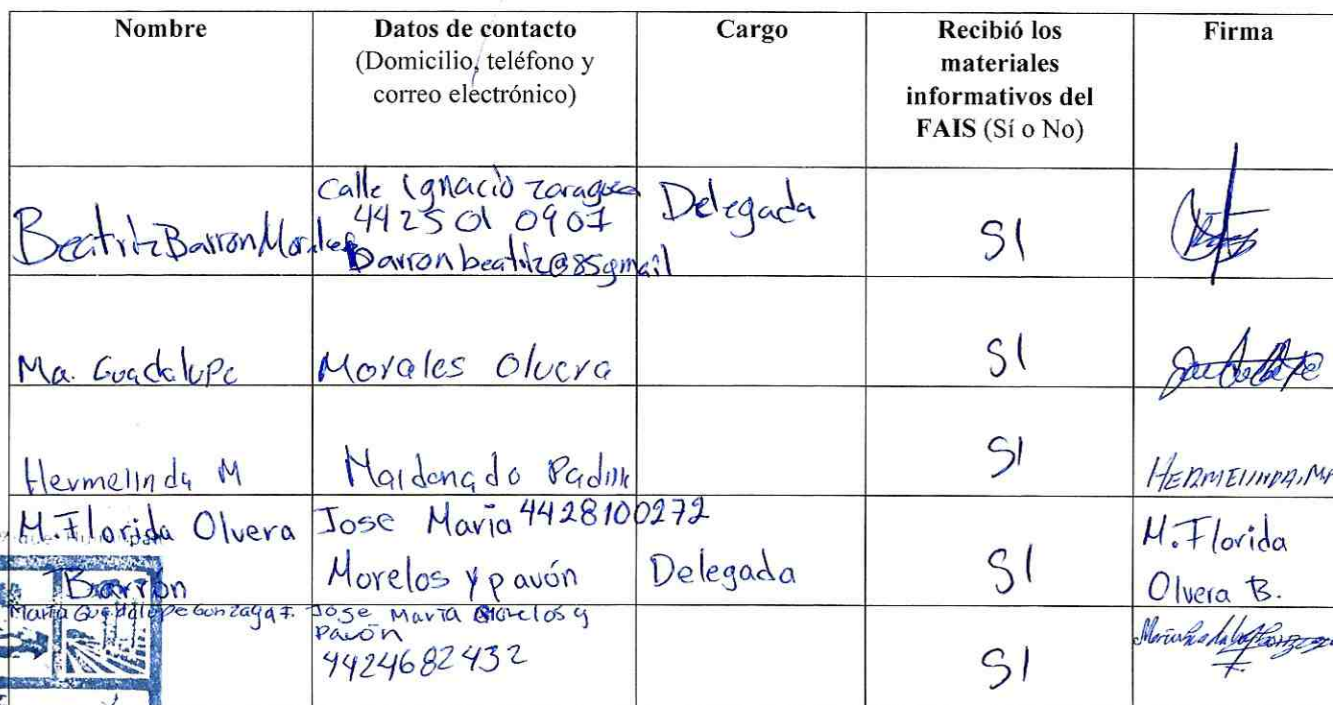 Nombre
Datos de contacto
(Domicilio, teléfono y
correo electrónico)
Cargo
Recibió los
materiales
informativos del
FAIS (Sí o No)
Firma
Beatriz Barron Morales
Calle Ignacio Zaragoza
442 501 0907
barronbeatriz@85gmail
Delegada
SI
Ma. Guadalupe
Morales Olvera
SI
Hermelinda M
Maldonado Padill
SI
HERMELINDA, MA
M. Florida Olvera
Barrón
Jose Maria 4428100272
Morelos y pavón
Delegada
SI
M. Florida
Olvera B.
Maria Guadalupe Gonzaga F.
Jose Maria Morelos y
Pavón
4424682432
SI